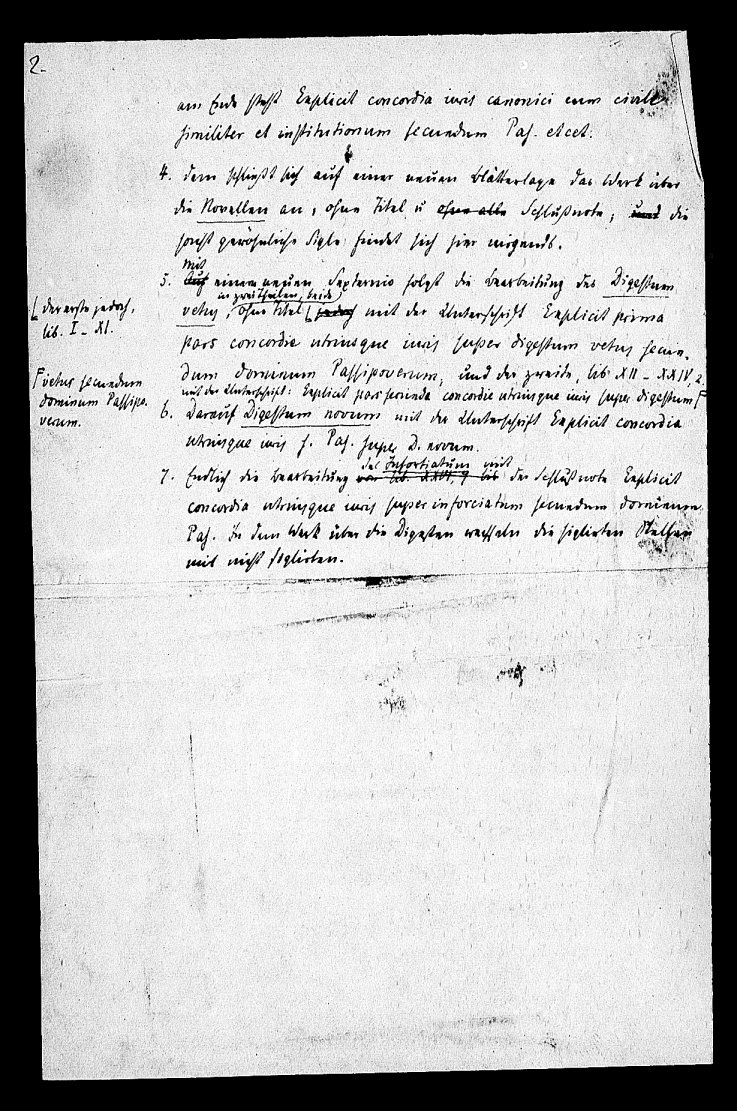 2.
am Ende steht Explicit concordia iuris canonici cum civile
similiter et institutionum secundum Pas. etcet.
4. Dem schließt sich auf einer neuen Blätterlage das Werk über
die Novellen an, ohne Titel u ohne alle Schlußnote, und die
sonst gewöhnliche Sigle findet sich hier nirgends.
Mit
5. Auf einem neuen Septernio folgt die Bearbeitung des Digestum
in zwei Theilen, beide
vetus, ohne Titel ⌊ jedoch mit der Unterschrift Explicit prima
⌊ der erste jedoch,
lib. I – XI.
pars concordie utriusque iuris super digestum vetus secun-
dum dominum Passipoverum, und der zweite, lib. XII – XXIV, 2.
mit der Unterschrift: Explicit pars secunda concordie utriusque iuris super digestum Γ
Γ vetus secundum
dominum Passipo-
verum.
6. Darauf Digestum novum mit der Unterschrift Explicit concordia
utriusque iuris s. Pas. super D. novum.
des Infortiatum mit
7. Endlich die Bearbeitung von lib. XXIV, 3 bis der Schlußnote Explicit
concordia utriusque iuris super inforciatum secundum dominum
Pas. In dem Werk über die Digesten wechseln die siglirten Stellen
mit nicht siglirten.